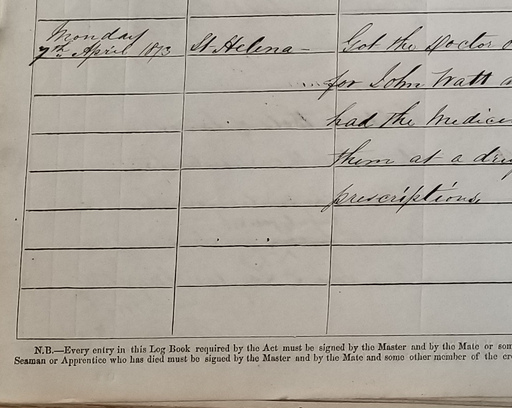 Monday
7th April 1873 St Helena – Got the Doctor
for John Watt
had the Medic
them at a
prescriptions.
N.B.—Every entry in this Log Book required by the Act must be signed by the Master and by the Mate or som
Seaman or Apprentice who has died must be signed by the Master and by the Mate and some other member of the cr